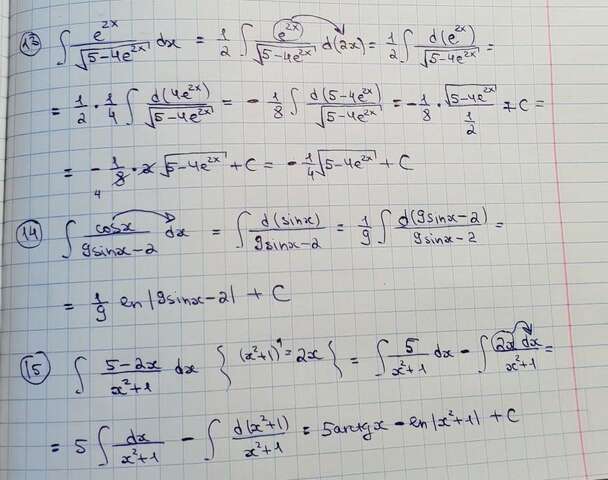 13 ∫ e^{2x}/√(5-4e^{2x}) dx = 1/2 ∫ e^{2x}/√(5-4e^{2x}) d(2x) = 1/2 ∫ d(e^{2x})/√(5-4e^{2x}) =
= 1/2 · 1/4 ∫ d(4e^{2x})/√(5-4e^{2x}) = - 1/8 ∫ d(5-4e^{2x})/√(5-4e^{2x}) = - 1/8 · √(5-4e^{2x})/(1/2) + C =
= - 1/8 · 2 √(5-4e^{2x}) + C = - 1/4 √(5-4e^{2x}) + C
14 ∫ cosx/(9sinx-2) dx = ∫ d(sinx)/(9sinx-2) = 1/9 ∫ d(9sinx-2)/(9sinx-2) =
= 1/9 ln|9sinx-2| + C
15 ∫ (5-2x)/(x²+1) dx { (x²+1)' = 2x } = ∫ 5/(x²+1) dx - ∫ 2x dx/(x²+1) =
= 5 ∫ dx/(x²+1) - ∫ d(x²+1)/(x²+1) = 5arctgx - ln|x²+1| + C